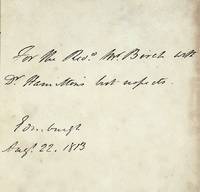 For the Revd. Mr Birch with
Dr. Hamilton's best respects.
Edinburgh
Augt. 22. 1813